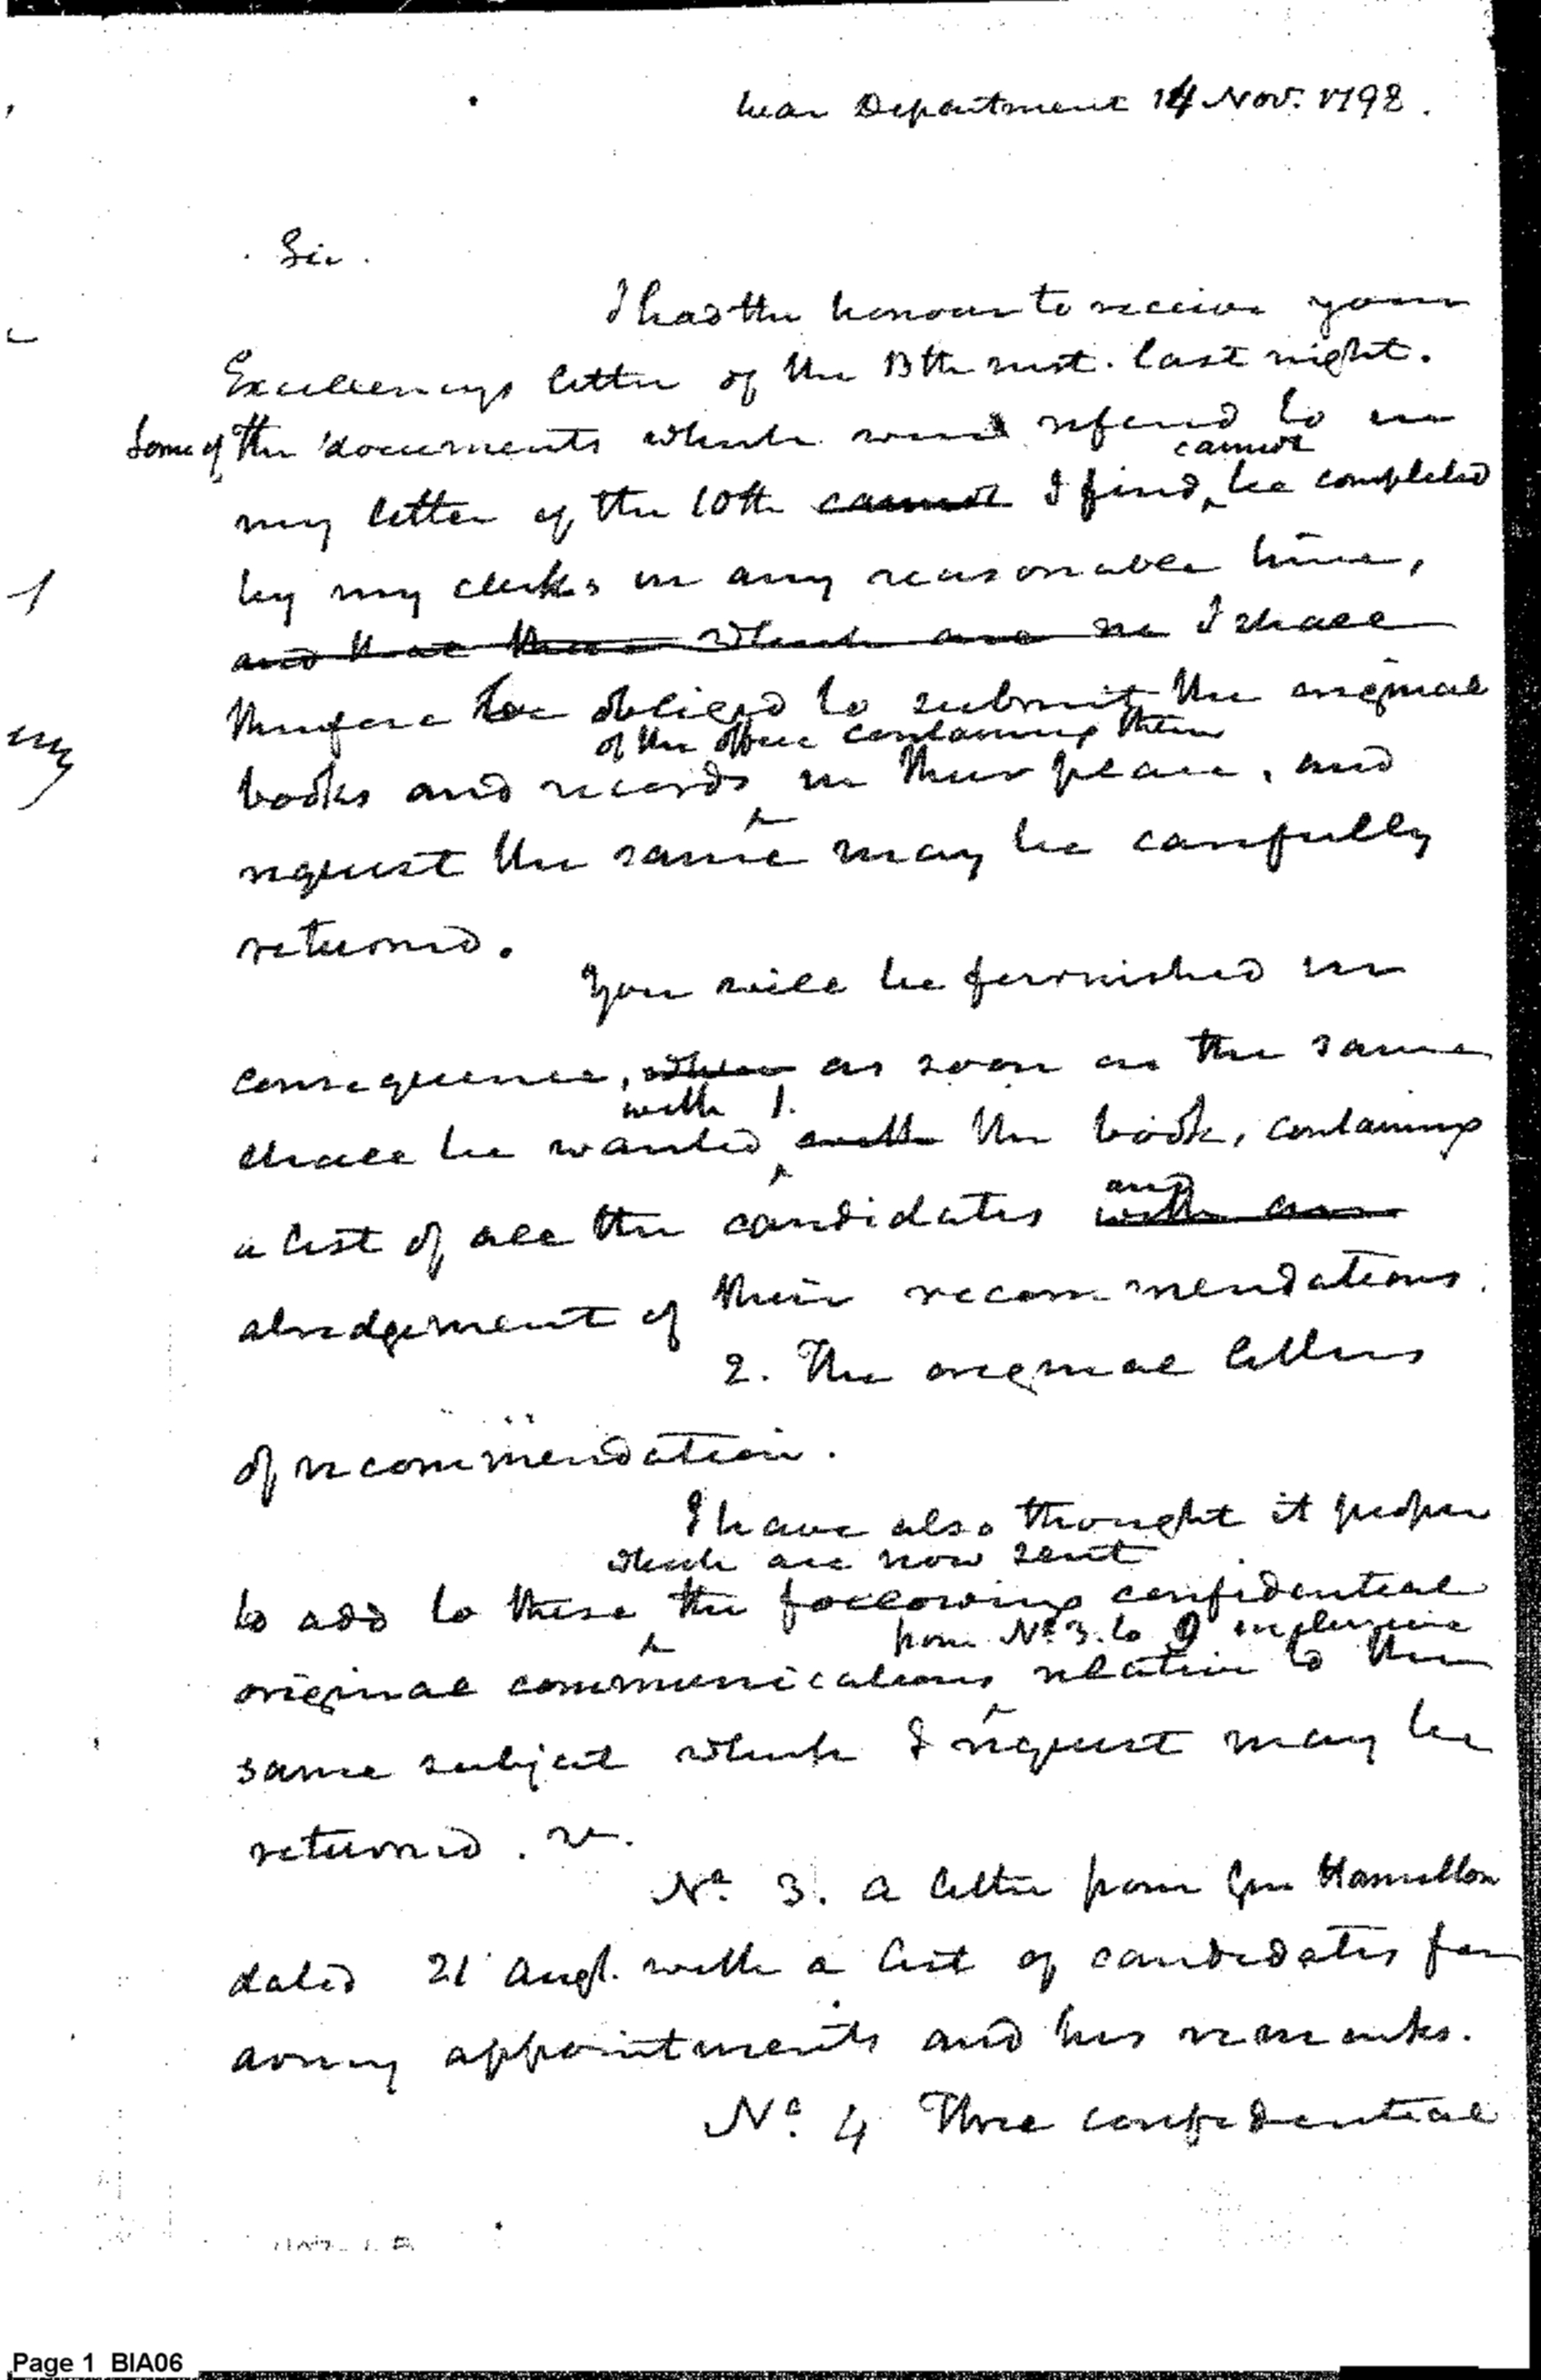 War Department 14 Nov. 1798.
Sir.
I had the honour to receive your
Excellencys letter of the 13th inst. last night.
Some of the documents which were refered to in
cannot
my letter of the 10th cannot I find, be completed
by my clerks in any reasonable time,
and that those which are in I shall
therefore be obliged to submit the original
of the office containing them
books and records in their place, and
request the same may be carefully
returned.
You will be furnished in
consequence, when as soon as the same
with 1.
shall be wanted with the book, containing
a list of all the candidates with an
and
abridgement of their recommendations.
2. The original letters
of recommendation.
I have also thought it proper
which are now sent
to add to these the following confidential
from No. 3. to 9 inclusive
original communications relative to the
same subject which I request may be
returned. viz.
No. 3. A letter from Gen Hamilton
dated 21 Augt. with a list of candidates for
army appointments and his remarks.
No. 4 Three confidential
Page 1 BIA06